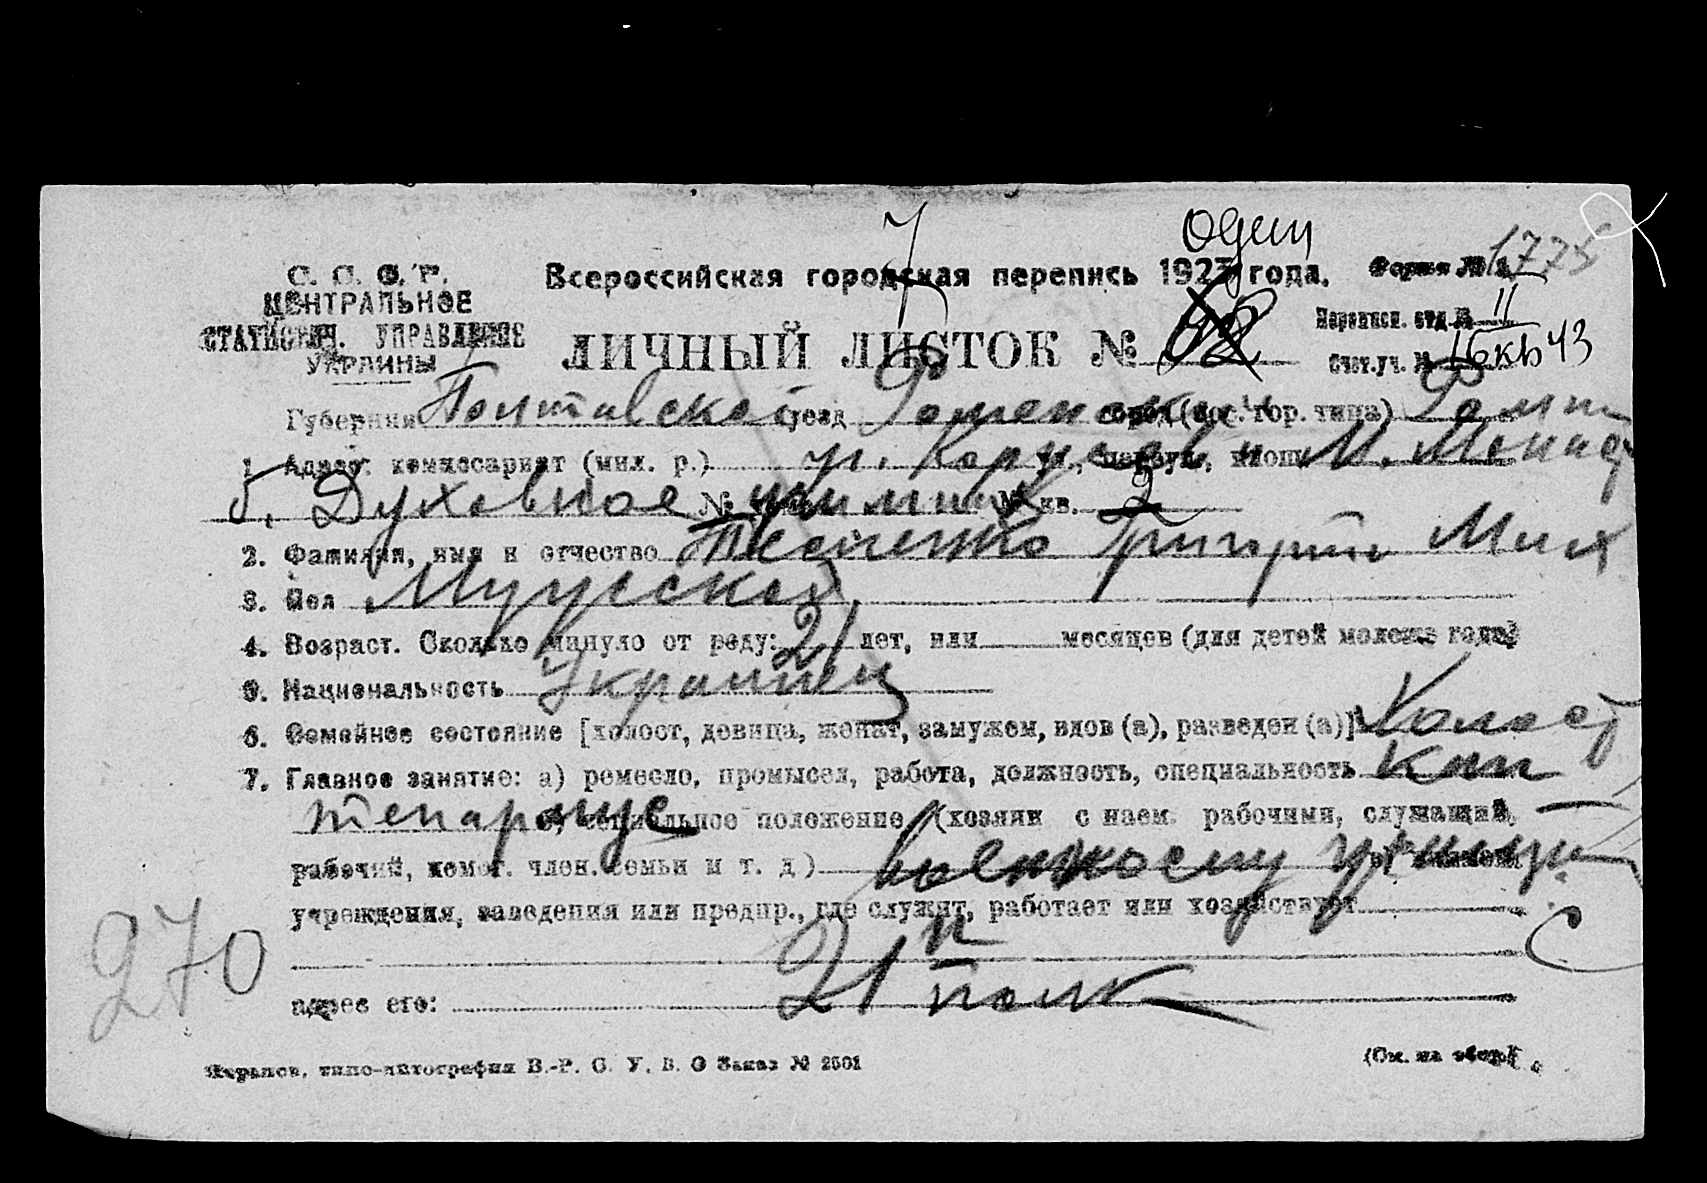 один
7
1775
С. С. С. Р. Всероссийская городская перепись 1923 года. Форма №
ЦЕНТРАЛЬНОЕ Переписн. отд. № 11
СТАТИСТИЧ. УПРАВЛЕНИЕ ЛИЧНЫЙ ЛИСТОК №
УКРАИНЫ Счет.уч. № 16 кв 43
Губерния Полтавской уезд Роменский город (пос. гор. типа) Ромны
1. Адрес: комиссариат (мил. р.) ул. площ.
б. Духовное училище № кв. 2
2. Фамилия, имя и отчество Григорий Мих
3. Пол Мужской
4. Возраст. Сколько минуло от роду: 21 лет, или месяцев (для детей моложе года)
5. Национальность Украинец
6. Семейное состояние [холост, девица, женат, замужем, вдов (а), разведен (а)] Холост
7. Главное занятие: а) ремесло, промысел, работа, должность, специальность
социальное положение (хозяин с наем. рабочими, служащий,
рабочий, помог. член. семьи и т. д.)
учреждения, заведения или предпр., где служит, работает или хозяйствует
270
адрес его: 21 полк
типо-литография В.-Р. С. У. В. О Заказ № 2501 (См. на обор.)